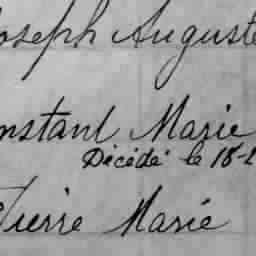 Joseph Auguste
Constant Marie
Décédé le 18-
Pierre Marie